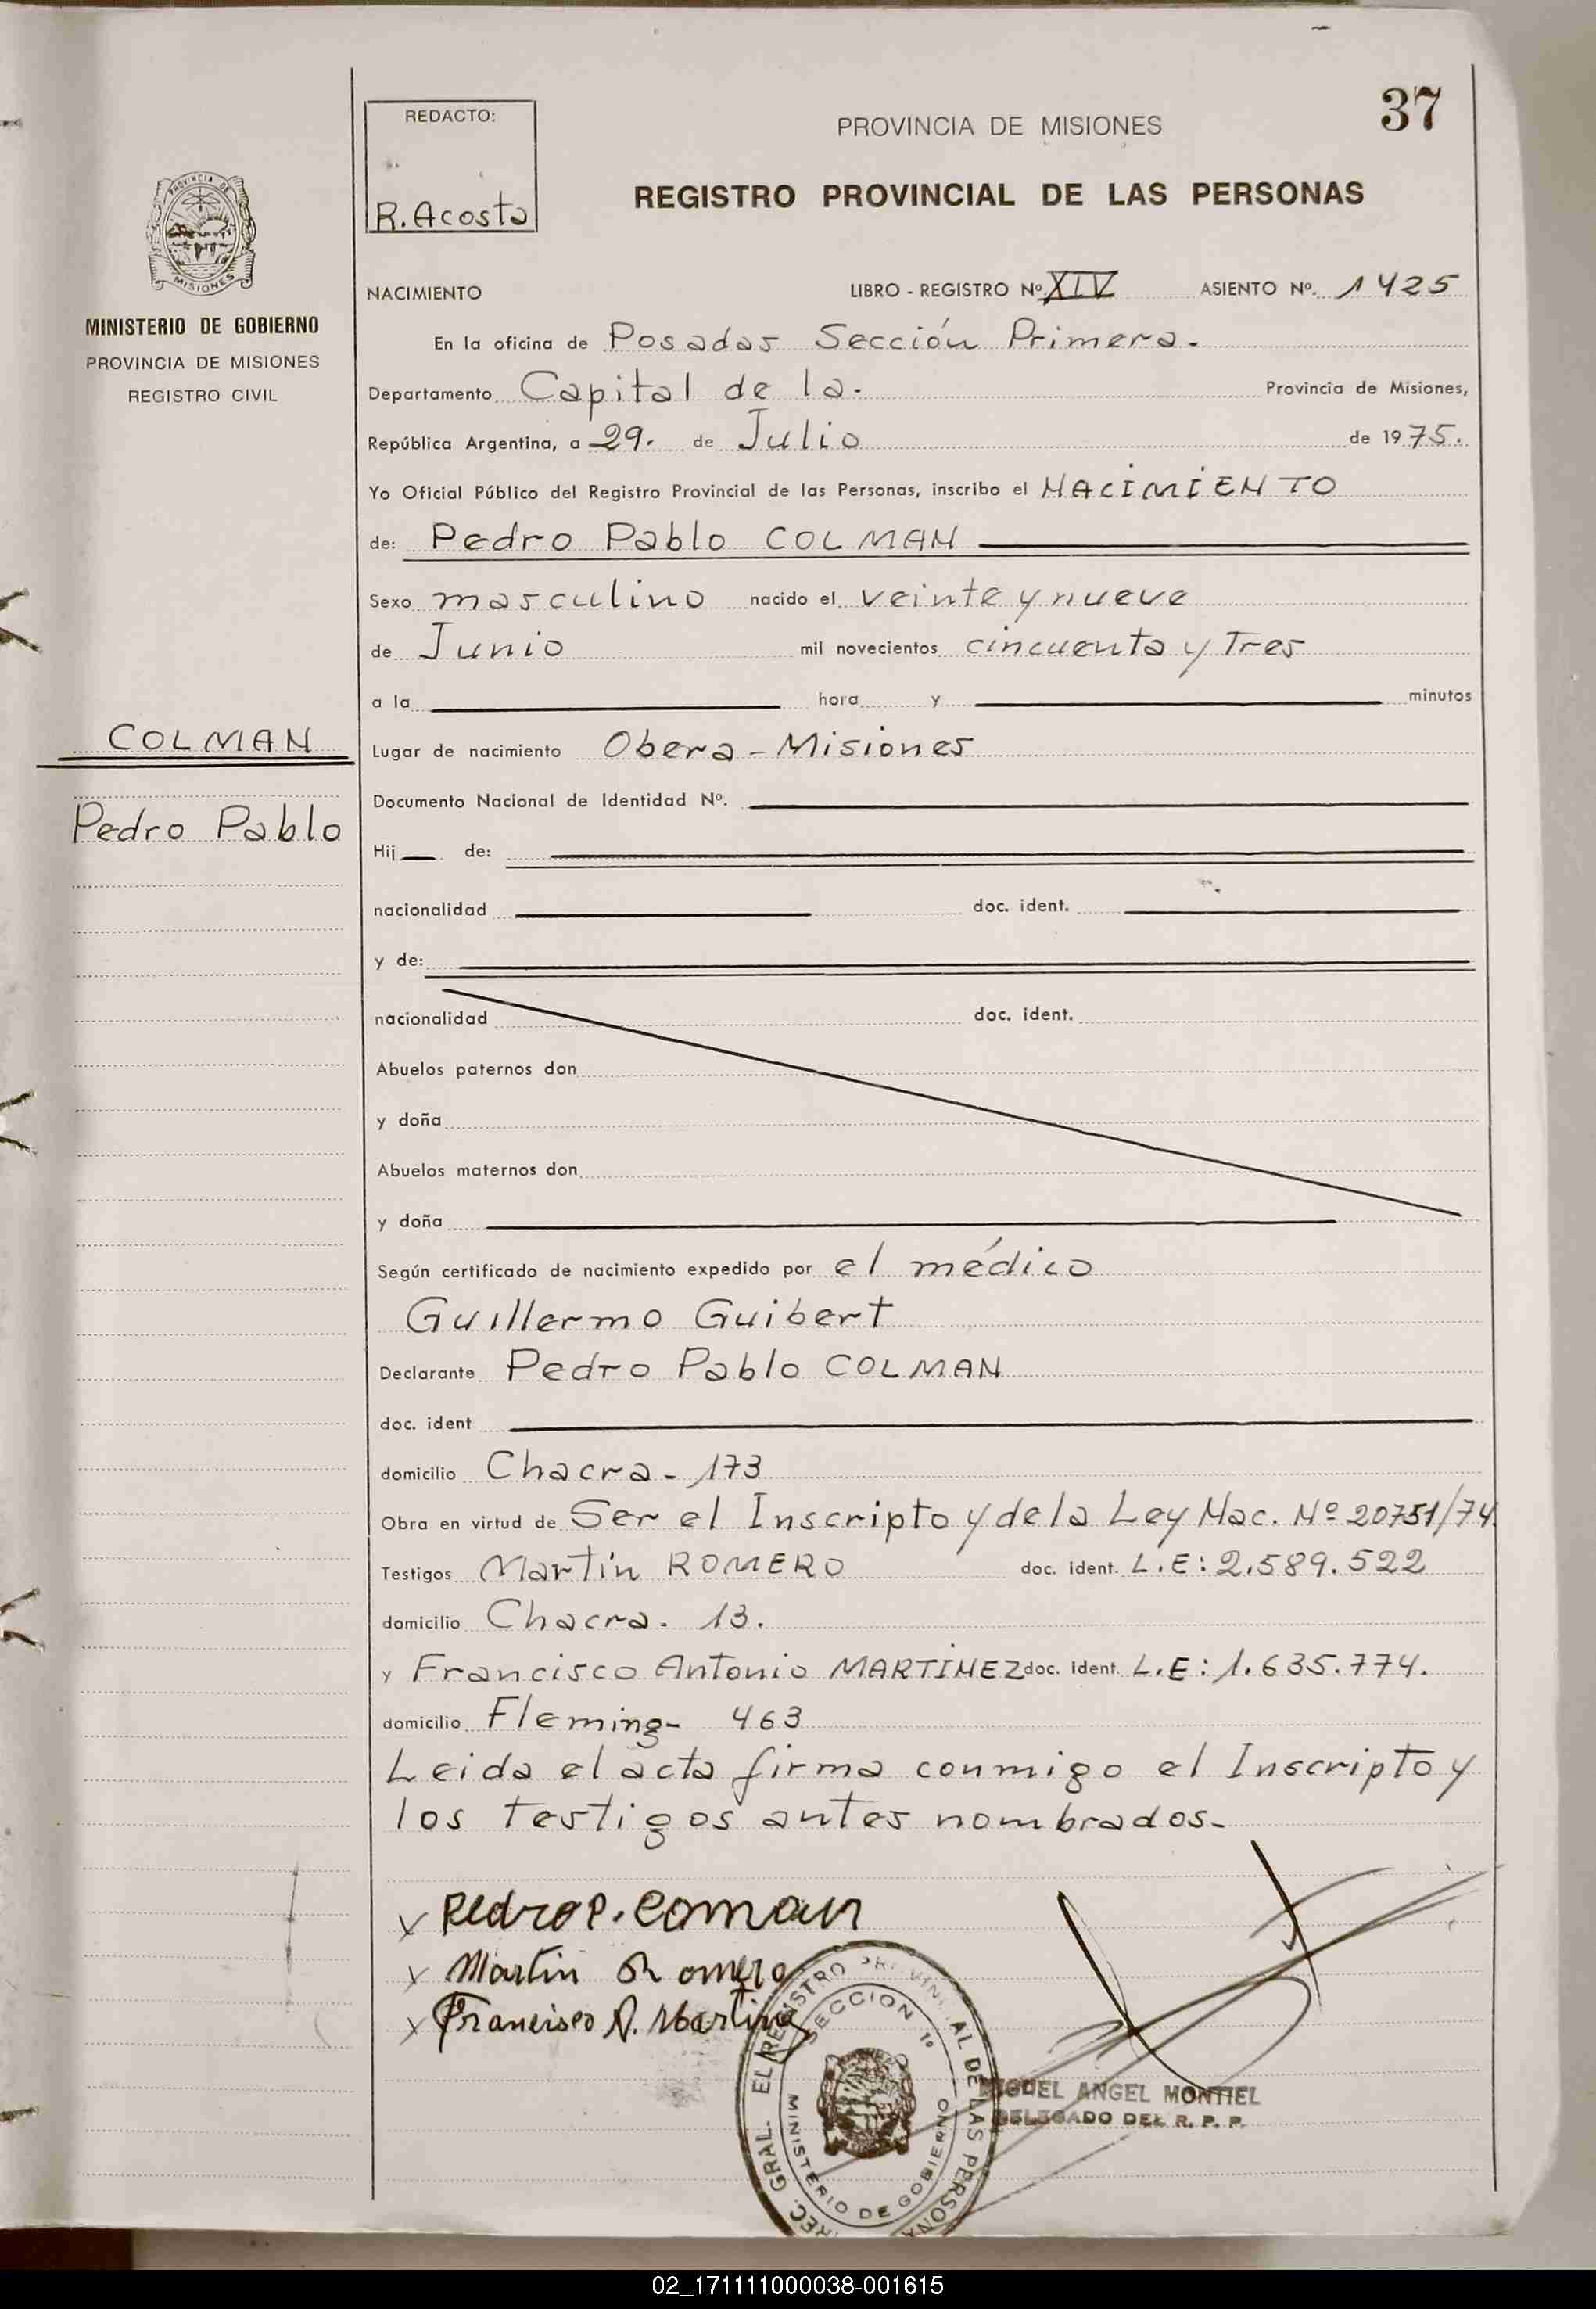 37
REDACTO:
R. Acosta
PROVINCIA DE MISIONES
REGISTRO PROVINCIAL DE LAS PERSONAS
PROVINCIA DE
MISIONES
MINISTERIO DE GOBIERNO
PROVINCIA DE MISIONES
REGISTRO CIVIL
COLMAN
Pedro Pablo
NACIMIENTO LIBRO - REGISTRO Nº. XIV ASIENTO Nº. 1425
En la oficina de Posadas Sección Primera.
Departamento Capital de la. Provincia de Misiones,
República Argentina, a 29. de Julio de 1975.
Yo Oficial Público del Registro Provincial de las Personas, inscribo el NACIMIENTO
de: Pedro Pablo COLMAN
Sexo masculino nacido el veinte y nueve
de Junio mil novecientos cincuenta y Tres
a la hora y minutos
Lugar de nacimiento Obera - Misiones
Documento Nacional de Identidad Nº.
Hij de:
nacionalidad doc. ident.
y de:
nacionalidad doc. ident.
Abuelos paternos don
y doña
Abuelos maternos don
y doña
Según certificado de nacimiento expedido por el médico
Guillermo Guibert
Declarante Pedro Pablo COLMAN
doc. ident
domicilio Chacra - 173
Obra en virtud de Ser el Inscripto y de la Ley Nac. Nº 20751/74.
Testigos Martin ROMERO doc. ident. L.E: 2.589.522
domicilio Chacra. 13.
y Francisco Antonio MARTINEZ doc. ident. L.E: 1.635.774.
domicilio Fleming - 463
Leida el acta firma conmigo el Inscripto y
los testigos antes nombrados.-
x Pedro P. Coman
x Martin Romero
x Francisco A. Martinez
DIREC. GRAL. EL REGISTRO PROVINCIAL DE LAS PERSONAS
SECCION 1º
MINISTERIO DE GOBIERNO
MIGUEL ANGEL MONTIEL
DELEGADO DEL R. P. P.
02_171111000038-001615